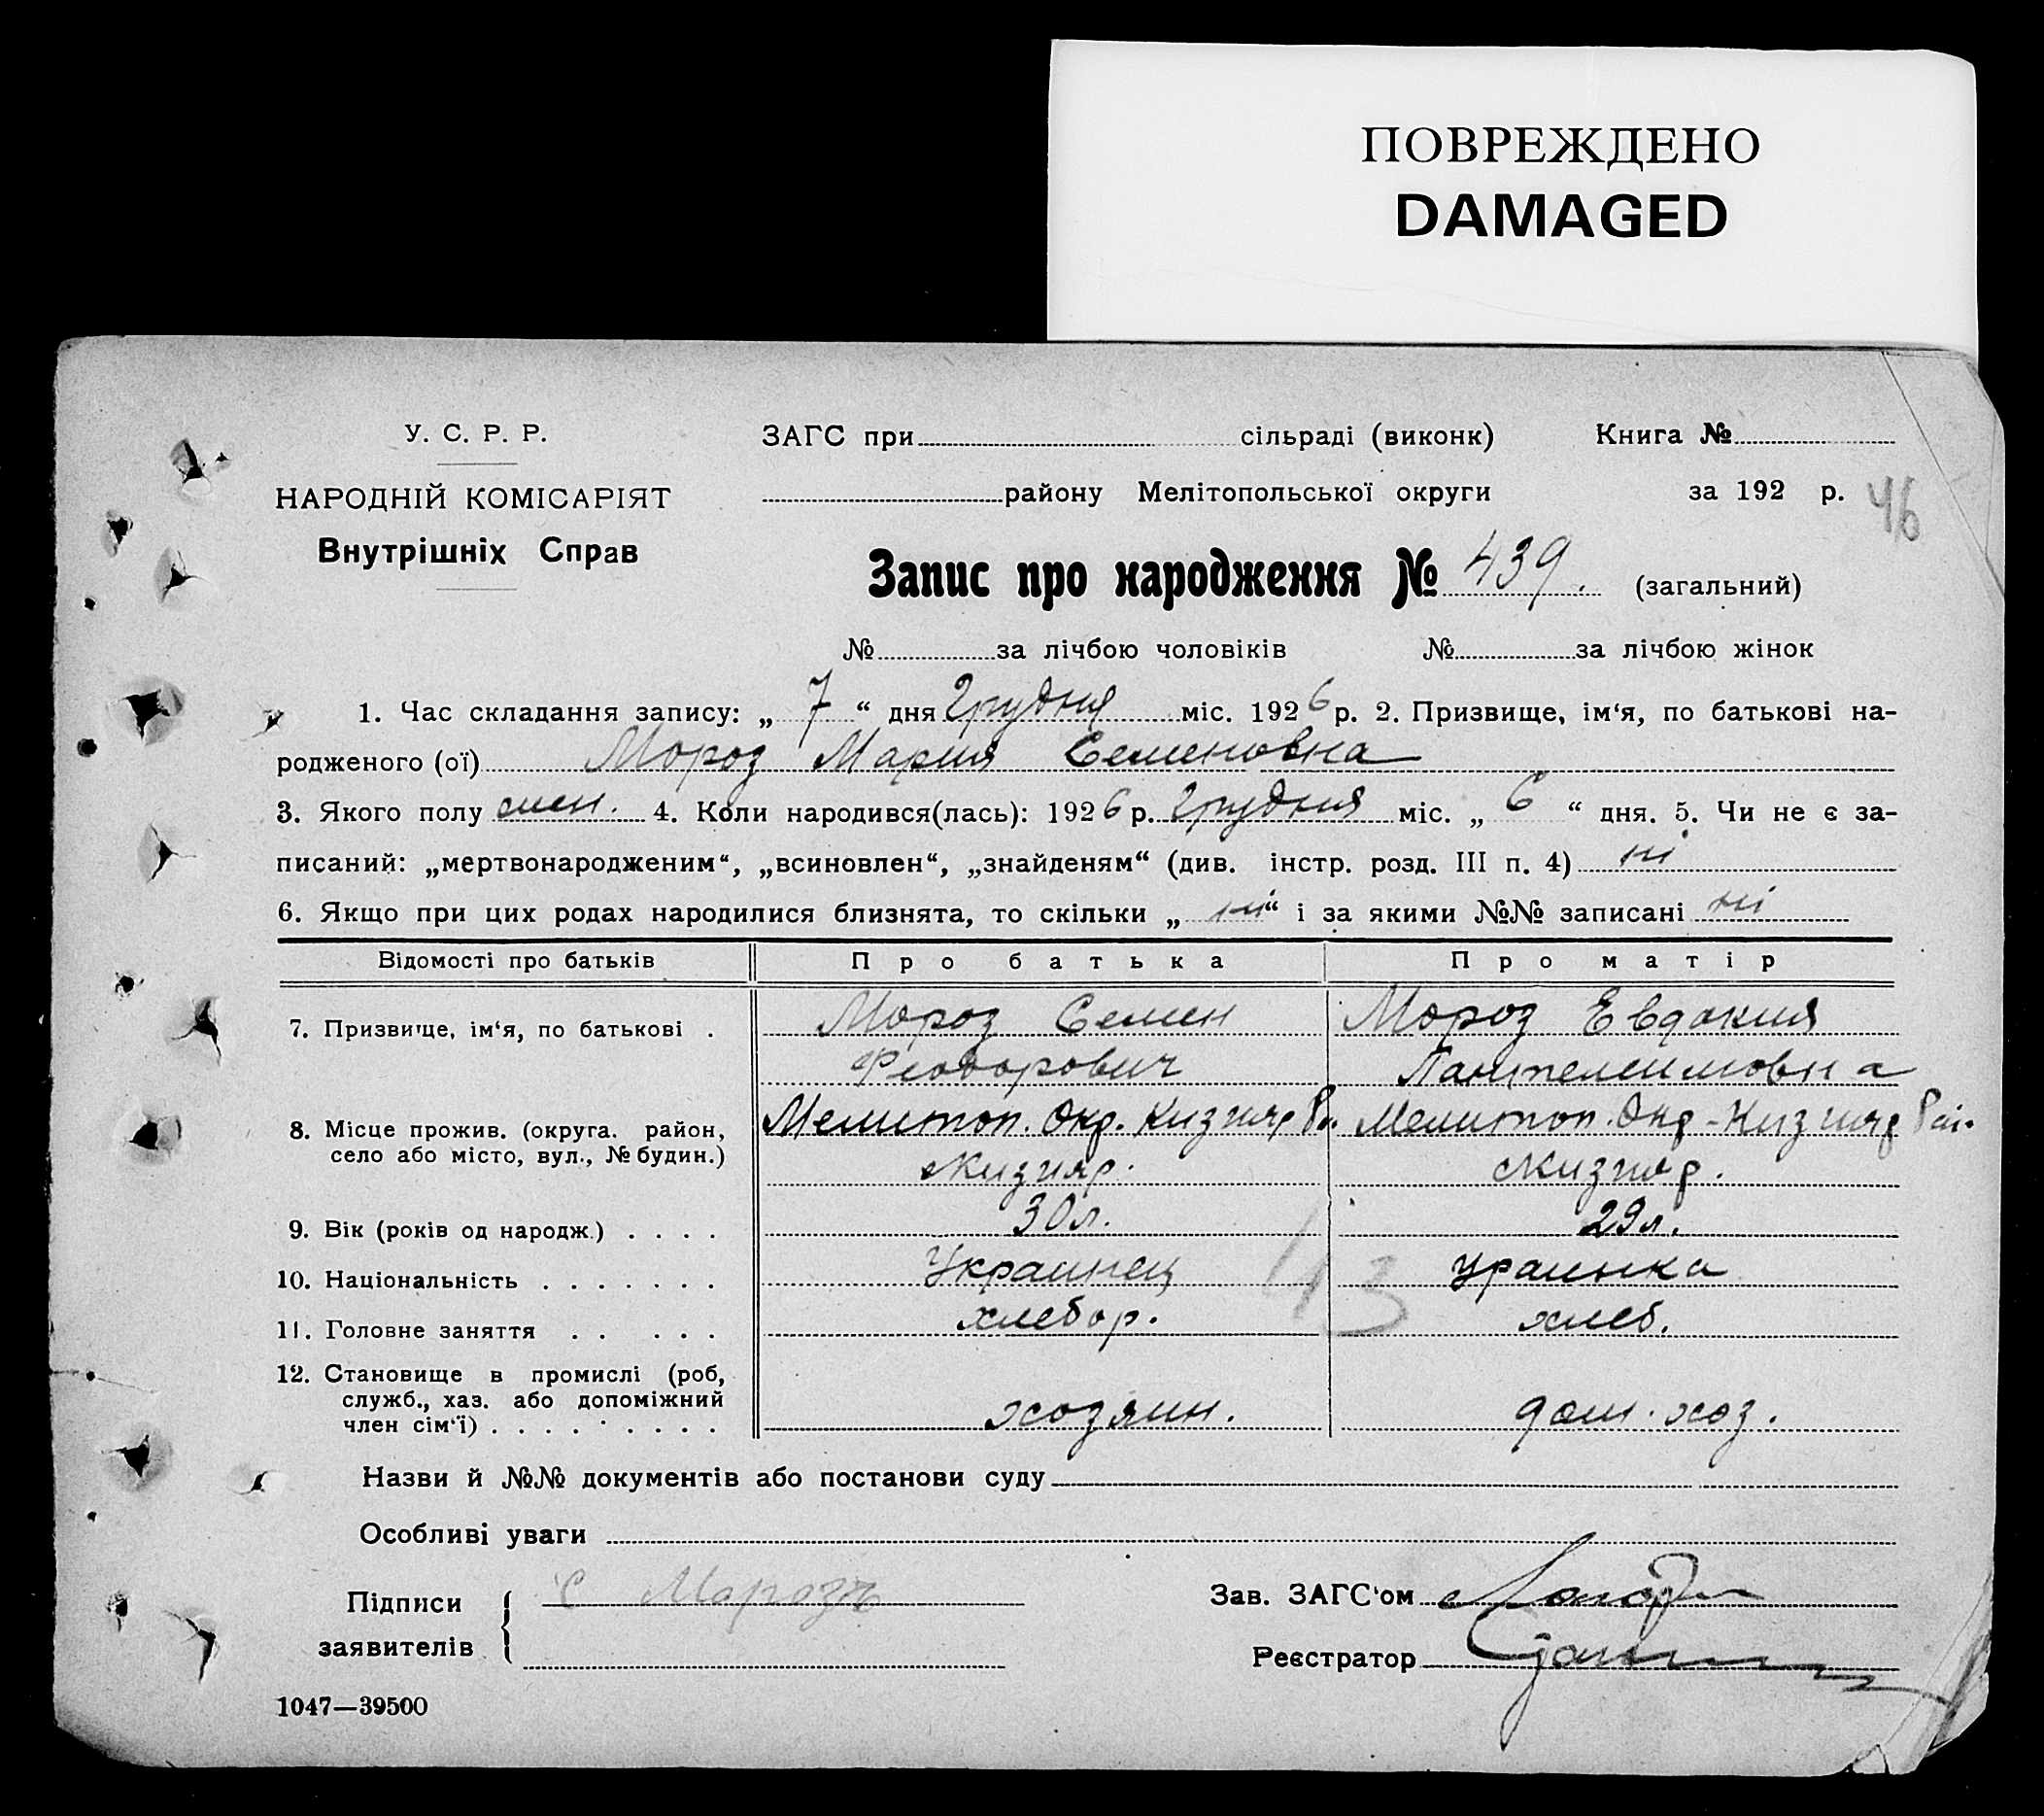 ПОВРЕЖДЕНО
DAMAGED
У. С. Р. Р.
НАРОДНІЙ КОМІСАРІЯТ
Внутрішніх Справ
ЗАГС при сільраді (виконк) Книга №
району Мелітопольської округи за 192 р. 46
Запис про народження № 439. (загальний)
№ за лічбою чоловіків № за лічбою жінок
1. Час складання запису: „ 7 “ дня Грудня міс. 1926 р. 2. Призвище, ім‘я, по батькові на-
родженого (ої) Мороз Мария Семеновна
3. Якого полу 4. Коли народився(лась): 1926 р. Грудня міс. „ 6 “ дня. 5. Чи не є за-
писаний: „мертвонародженим“, „всиновлен“, „знайденям“ (див. інстр. розд. III п. 4) ні
6. Якщо при цих родах народилися близнята, то скільки „ ні “ і за якими №№ записані ні
Відомості про батьків Про батька Про матір
7. Призвище, ім‘я, по батькові . Мороз Семен Мороз Евдокия
Феодорович Пантелеимовна
8. Місце прожив. (округа. район, Мелитоп. Окр. Кизияр Ра. Мелитоп. Окр - Кизияр Рай.
село або місто, вул., № будин.) Кизияр. Кизияр.
9. Вік (років од народж.) . . . . 30 л. 29 л.
10. Національність . . . . . . . Украинец Ураинка
13
11. Головне заняття . . . . . хлебор. хлеб.
12. Становище в промислі (роб,
служб., хаз. або допоміжний
член сім‘ї) . . . . . . . . хозяин. дом. хоз.
Назви й №№ документів або постанови суду
Особливі уваги
Підписи С Морозъ Зав. ЗАГС‘ом
заявителів Реєстратор
1047—39500